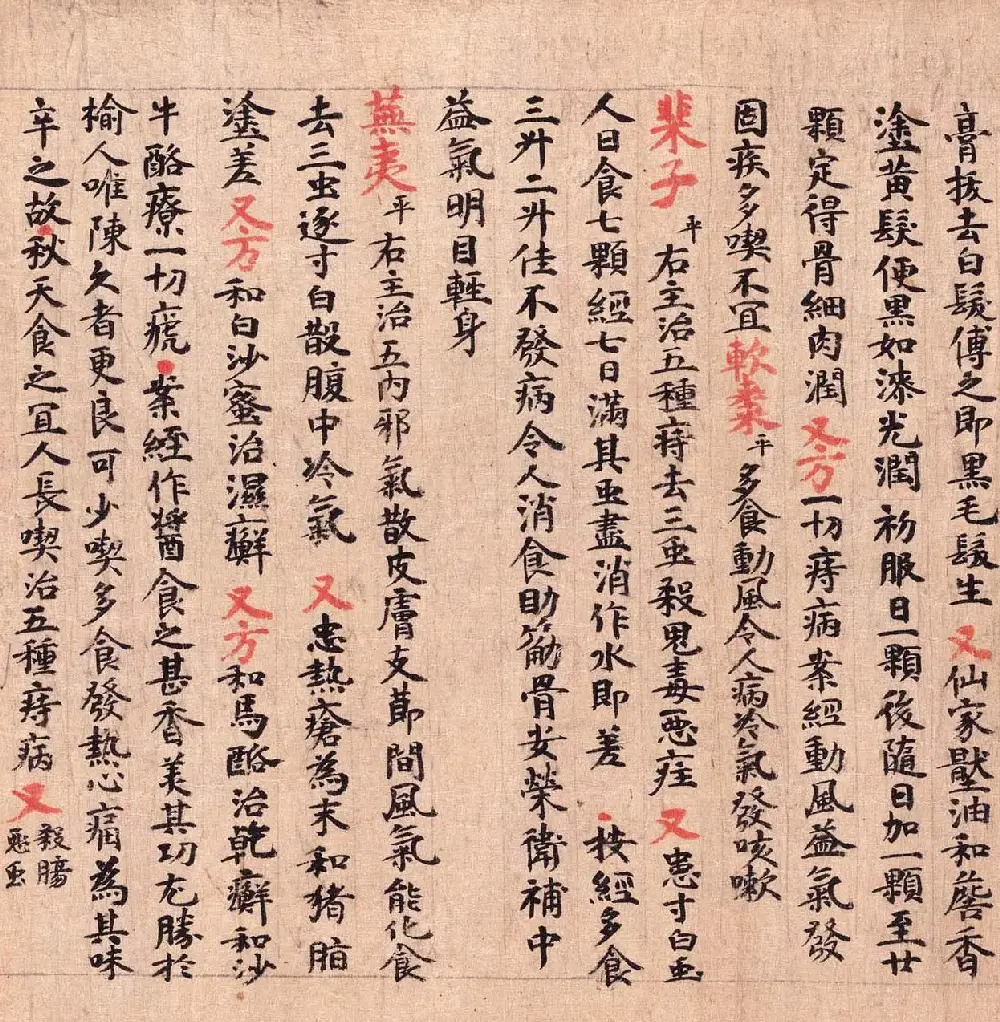 膏拔去白髮傅之即黑毛髮生 又仙家壓油和麝香
塗黃髮便黑如漆光潤 初服日一顆後隨日加一顆至廿
顆定得骨細肉潤 又方一切痔病案經動風益氣發
固疾多喫不宜 軟棗平 多食動風令人病冷氣發咳嗽
榧子平 右主治五種痔去三虫殺鬼毒惡疰 又患寸白虫
人日食七顆經七日滿其虫盡消作水即差 按經多食
三升二升佳不發病令人消食助筋骨安榮衛補中
益氣明目輕身
蕪荑平 右主治五內邪氣散皮膚支節間風氣能化食
去三虫逐寸白散腹中冷氣 又患熱瘡為末和猪脂
塗差 又方和白沙蜜治濕癬 又方和馬酪治乾癬和沙
牛酪療一切瘡 案經作醬食之甚香美其功尤勝於
榆人唯陳久者更良可少喫多食發熱心痛為其味
辛之故 秋天食之宜人長喫治五種痔病 又殺腸惡虫